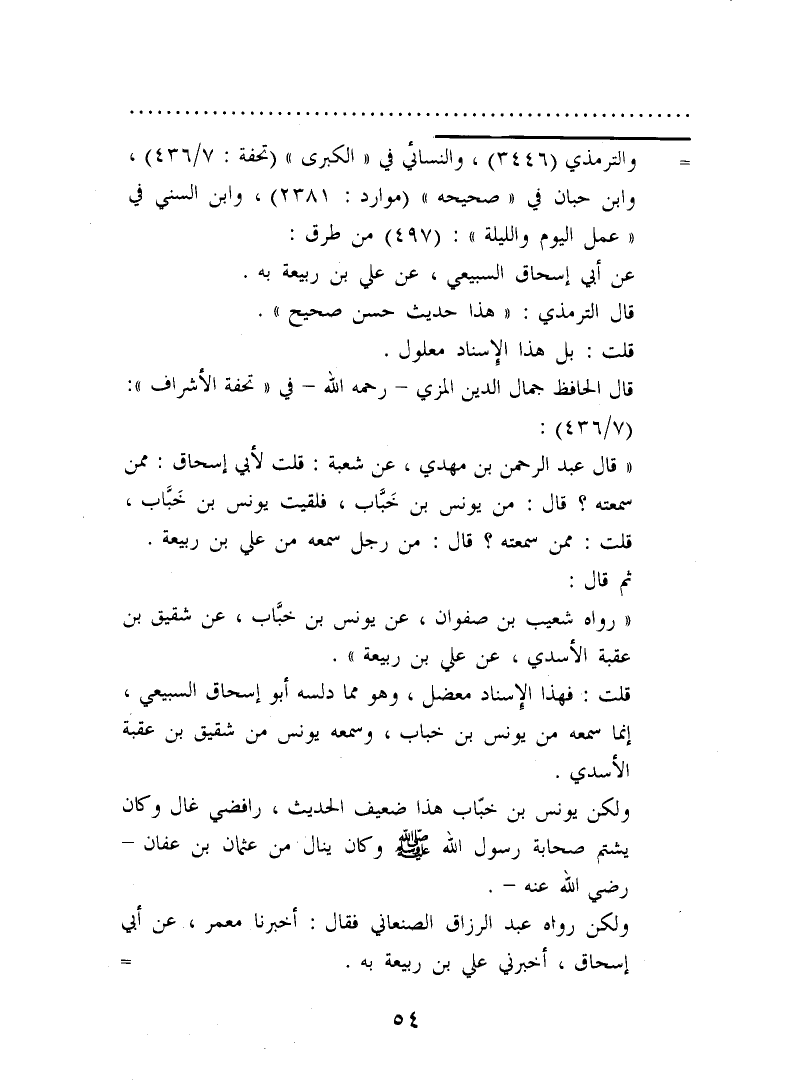 = والترمذي (٣٤٤٦) ، والنسائي في « الكبرى » (تحفة : ٤٣٦/٧) ،
وابن حبان في « صحيحه » (موارد : ٢٣٨١) ، وابن السني في
« عمل اليوم والليلة » : (٤٩٧) من طرق :
عن أبي إسحاق السبيعي ، عن علي بن ربيعة به .
قال الترمذي : « هذا حديث حسن صحيح » .
قلت : بل هذا الإسناد معلول .
قال الحافظ جمال الدين المزي – رحمه الله – في « تحفة الأشراف »:
(٤٣٦/٧) :
« قال عبد الرحمن بن مهدي ، عن شعبة : قلت لأبي إسحاق : ممن
سمعته ؟ قال : من يونس بن خَبَّاب ، فلقيت يونس بن خَبَّاب ،
قلت : ممن سمعته ؟ قال : من رجل سمعه من علي بن ربيعة .
ثم قال :
« رواه شعيب بن صفوان ، عن يونس بن خبَّاب ، عن شقيق بن
عقبة الأسدي ، عن علي بن ربيعة » .
قلت : فهذا الإسناد معضل ، وهو مما دلسه أبو إسحاق السبيعي ،
إنما سمعه من يونس بن خباب ، وسمعه يونس من شقيق بن عقبة
الأسدي .
ولكن يونس بن خبّاب هذا ضعيف الحديث ، رافضي غال وكان
يشتم صحابة رسول الله ﷺ وكان ينال من عثمان بن عفان –
رضي الله عنه – .
ولكن رواه عبد الرزاق الصنعاني فقال : أخبرنا معمر ، عن أبي
إسحاق ، أخبرني علي بن ربيعة به . =
٥٤